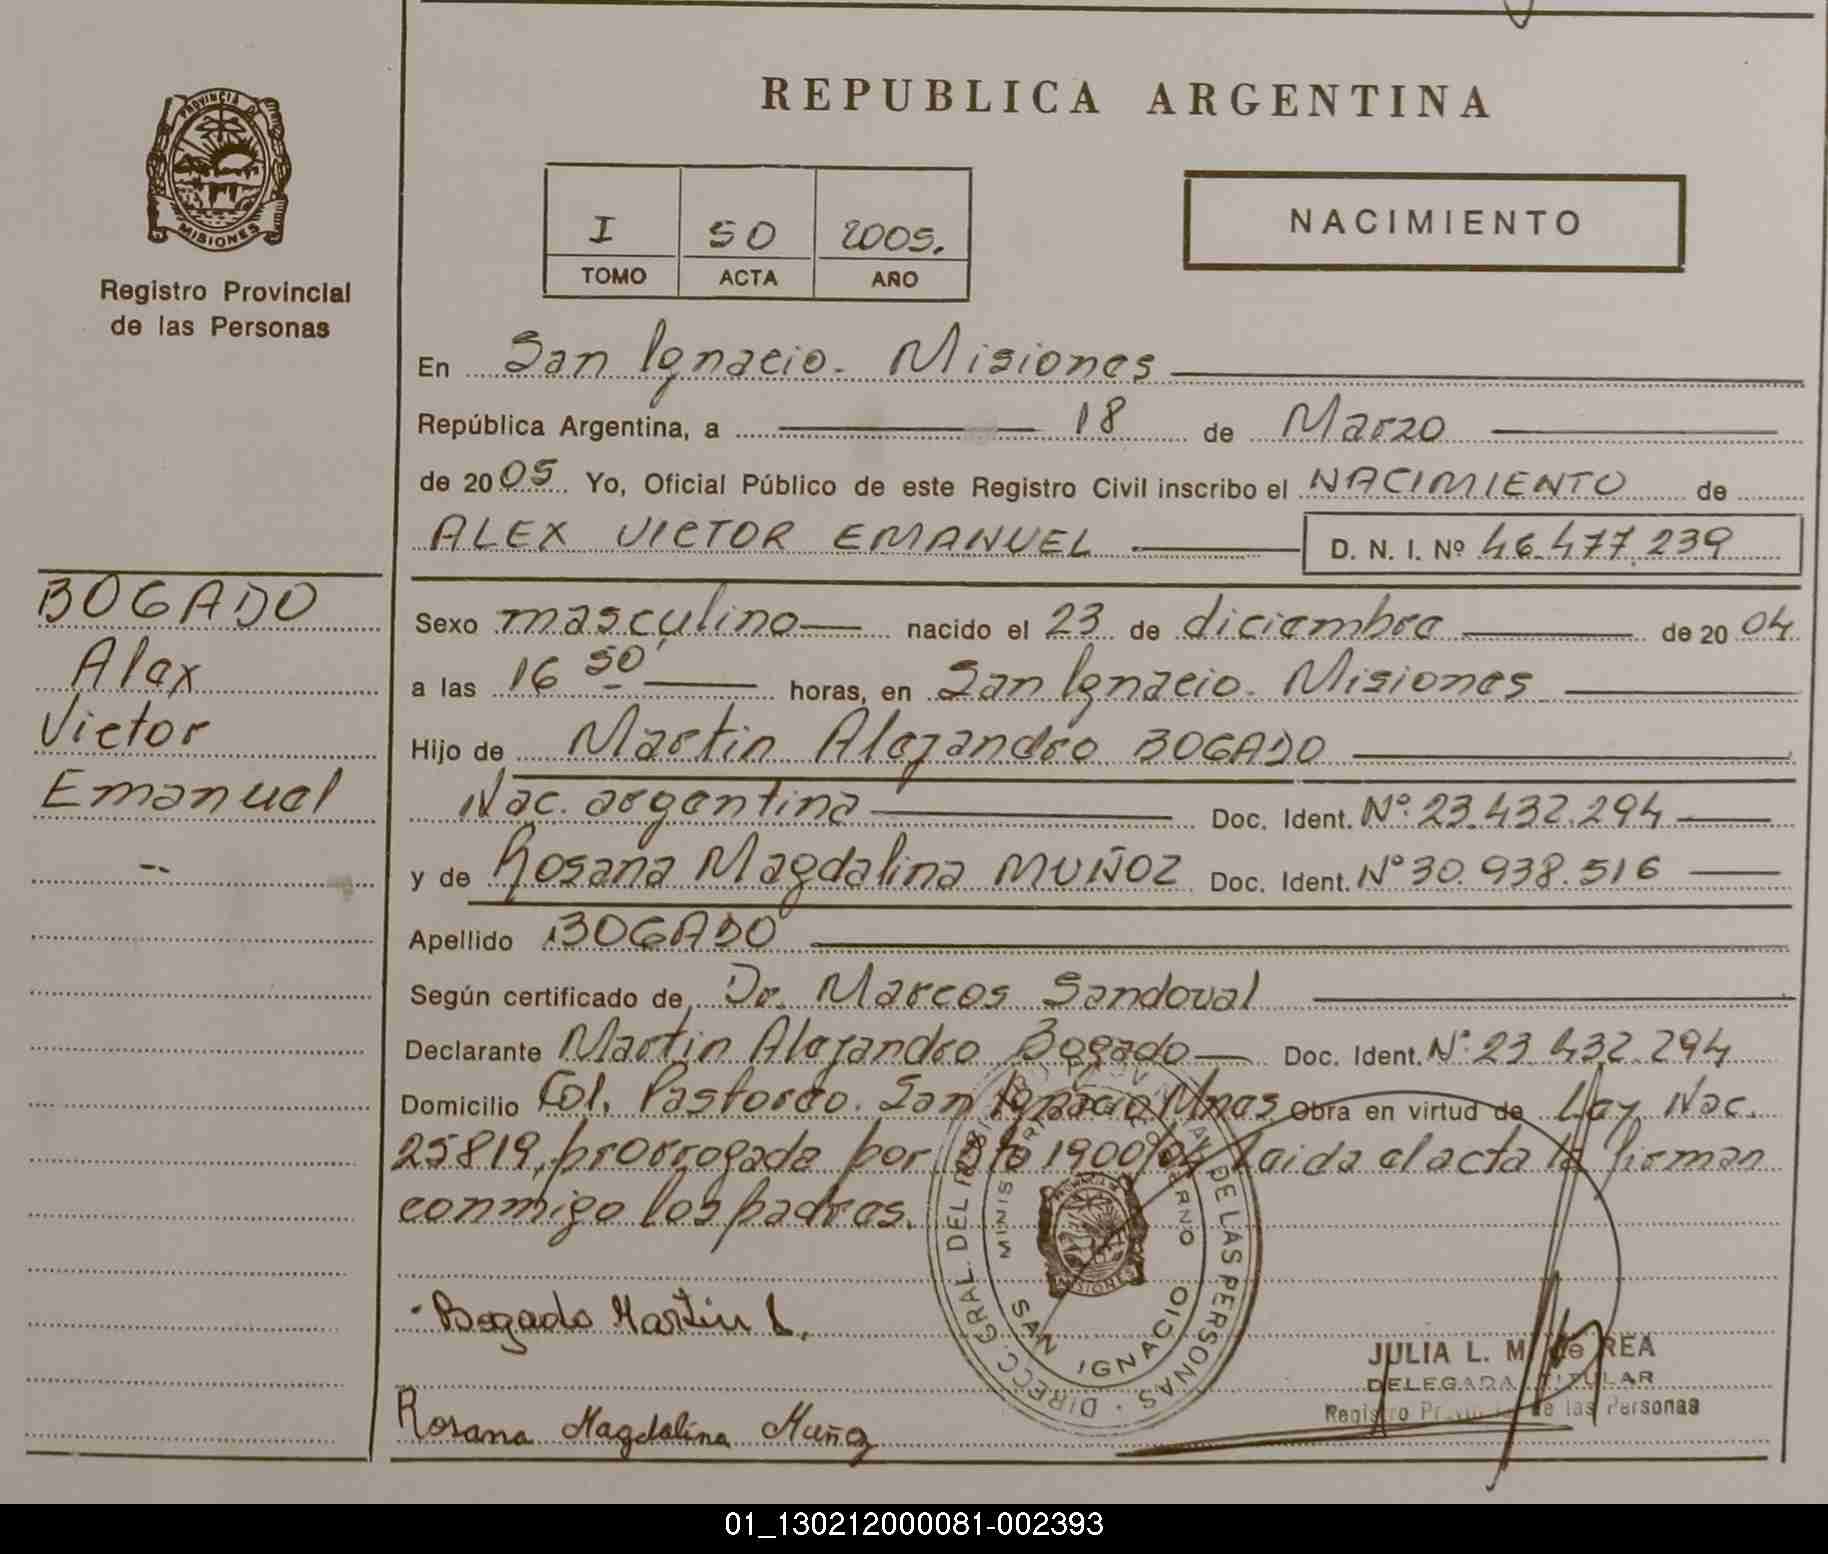 REPUBLICA ARGENTINA
PROVINCIA DE
MISIONES
Registro Provincial
de las Personas
I 50 2005.
TOMO ACTA AÑO
NACIMIENTO
En San Ignacio. Misiones
República Argentina, a 18 de Marzo
de 2005 Yo, Oficial Público de este Registro Civil inscribo el NACIMIENTO de
ALEX VICTOR EMANUEL D. N. I. Nº 46.477.239
BOGADO
Alex
Victor
Emanuel
--
Sexo masculino nacido el 23 de diciembre de 2004
a las 16 50' horas, en San Ignacio. Misiones
Hijo de Martin Alejandro BOGADO
Nac. argentina Doc. Ident. Nº 23.432.294
y de Rosana Magdalina MUÑOZ Doc. Ident. Nº 30.938.516
Apellido BOGADO
Según certificado de Dr. Marcos Sandoval
Declarante Martin Alejandro Bogado Doc. Ident. Nº 23.432.294
Domicilio Col. Pastoreo. San Ignacio Mnes. Obra en virtud de Ley Nac.
25819, prorrogada por Dto 1900/04 Leida el acta la firman
conmigo los padres.
DIRECC. GRAL. DEL DE LAS PERSONAS
SAN IGNACIO
MISIONES
Bogado Martin
Rosana Magdalina Muñoz
JULIA L. M. de REA
DELEGADA TITULAR
Registro Provincial de las Personas
01_130212000081-002393